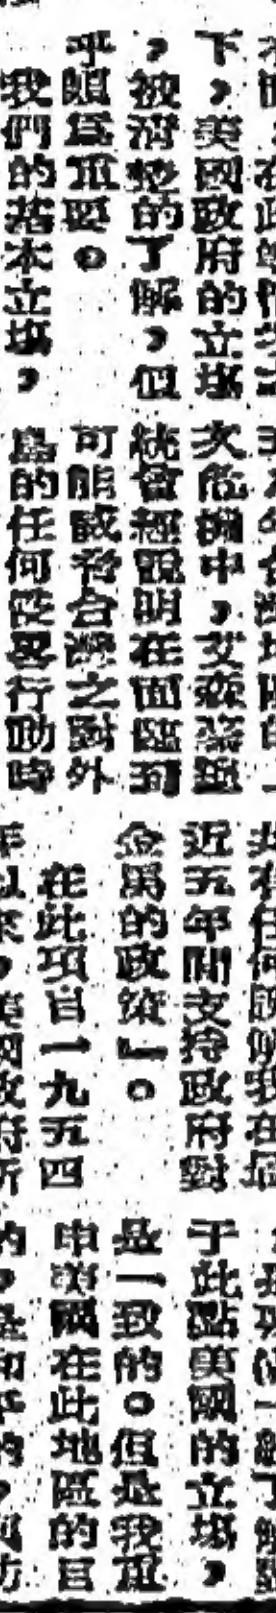 下,美國政府的立場
,被清楚的了解,似
乎頗爲重要。
我們的基本立場,
次危機中,艾森豪總
統曾經說明在面臨到
可能威脅台灣之對外
島的任何侵畧行動時
近五年間支持政府對
金馬的政策』。
在此項自一九五四
年以來,美國政府所
于此點美國的立場,
是一致的。但是我重
申美國在此地區的目
的,是和平的,